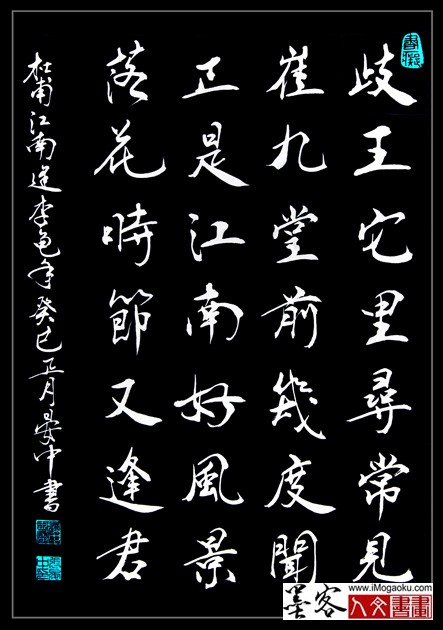 歧王宅里尋常見
崔九堂前幾度聞
正是江南好風景
落花時節又逢君
杜甫江南逢李龜年癸巳正月晏中書
墨客
www.iMogaoku.com
人文書畫